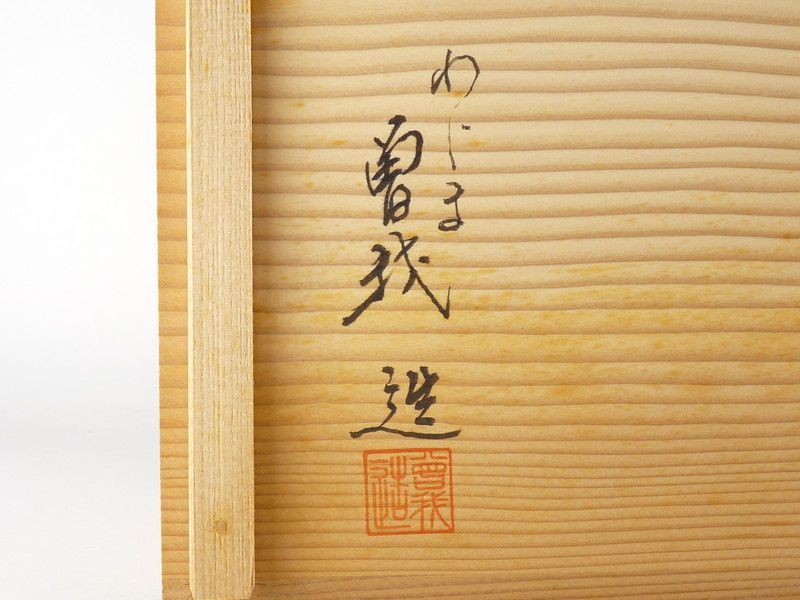 わじま
曽我
造
曽我造